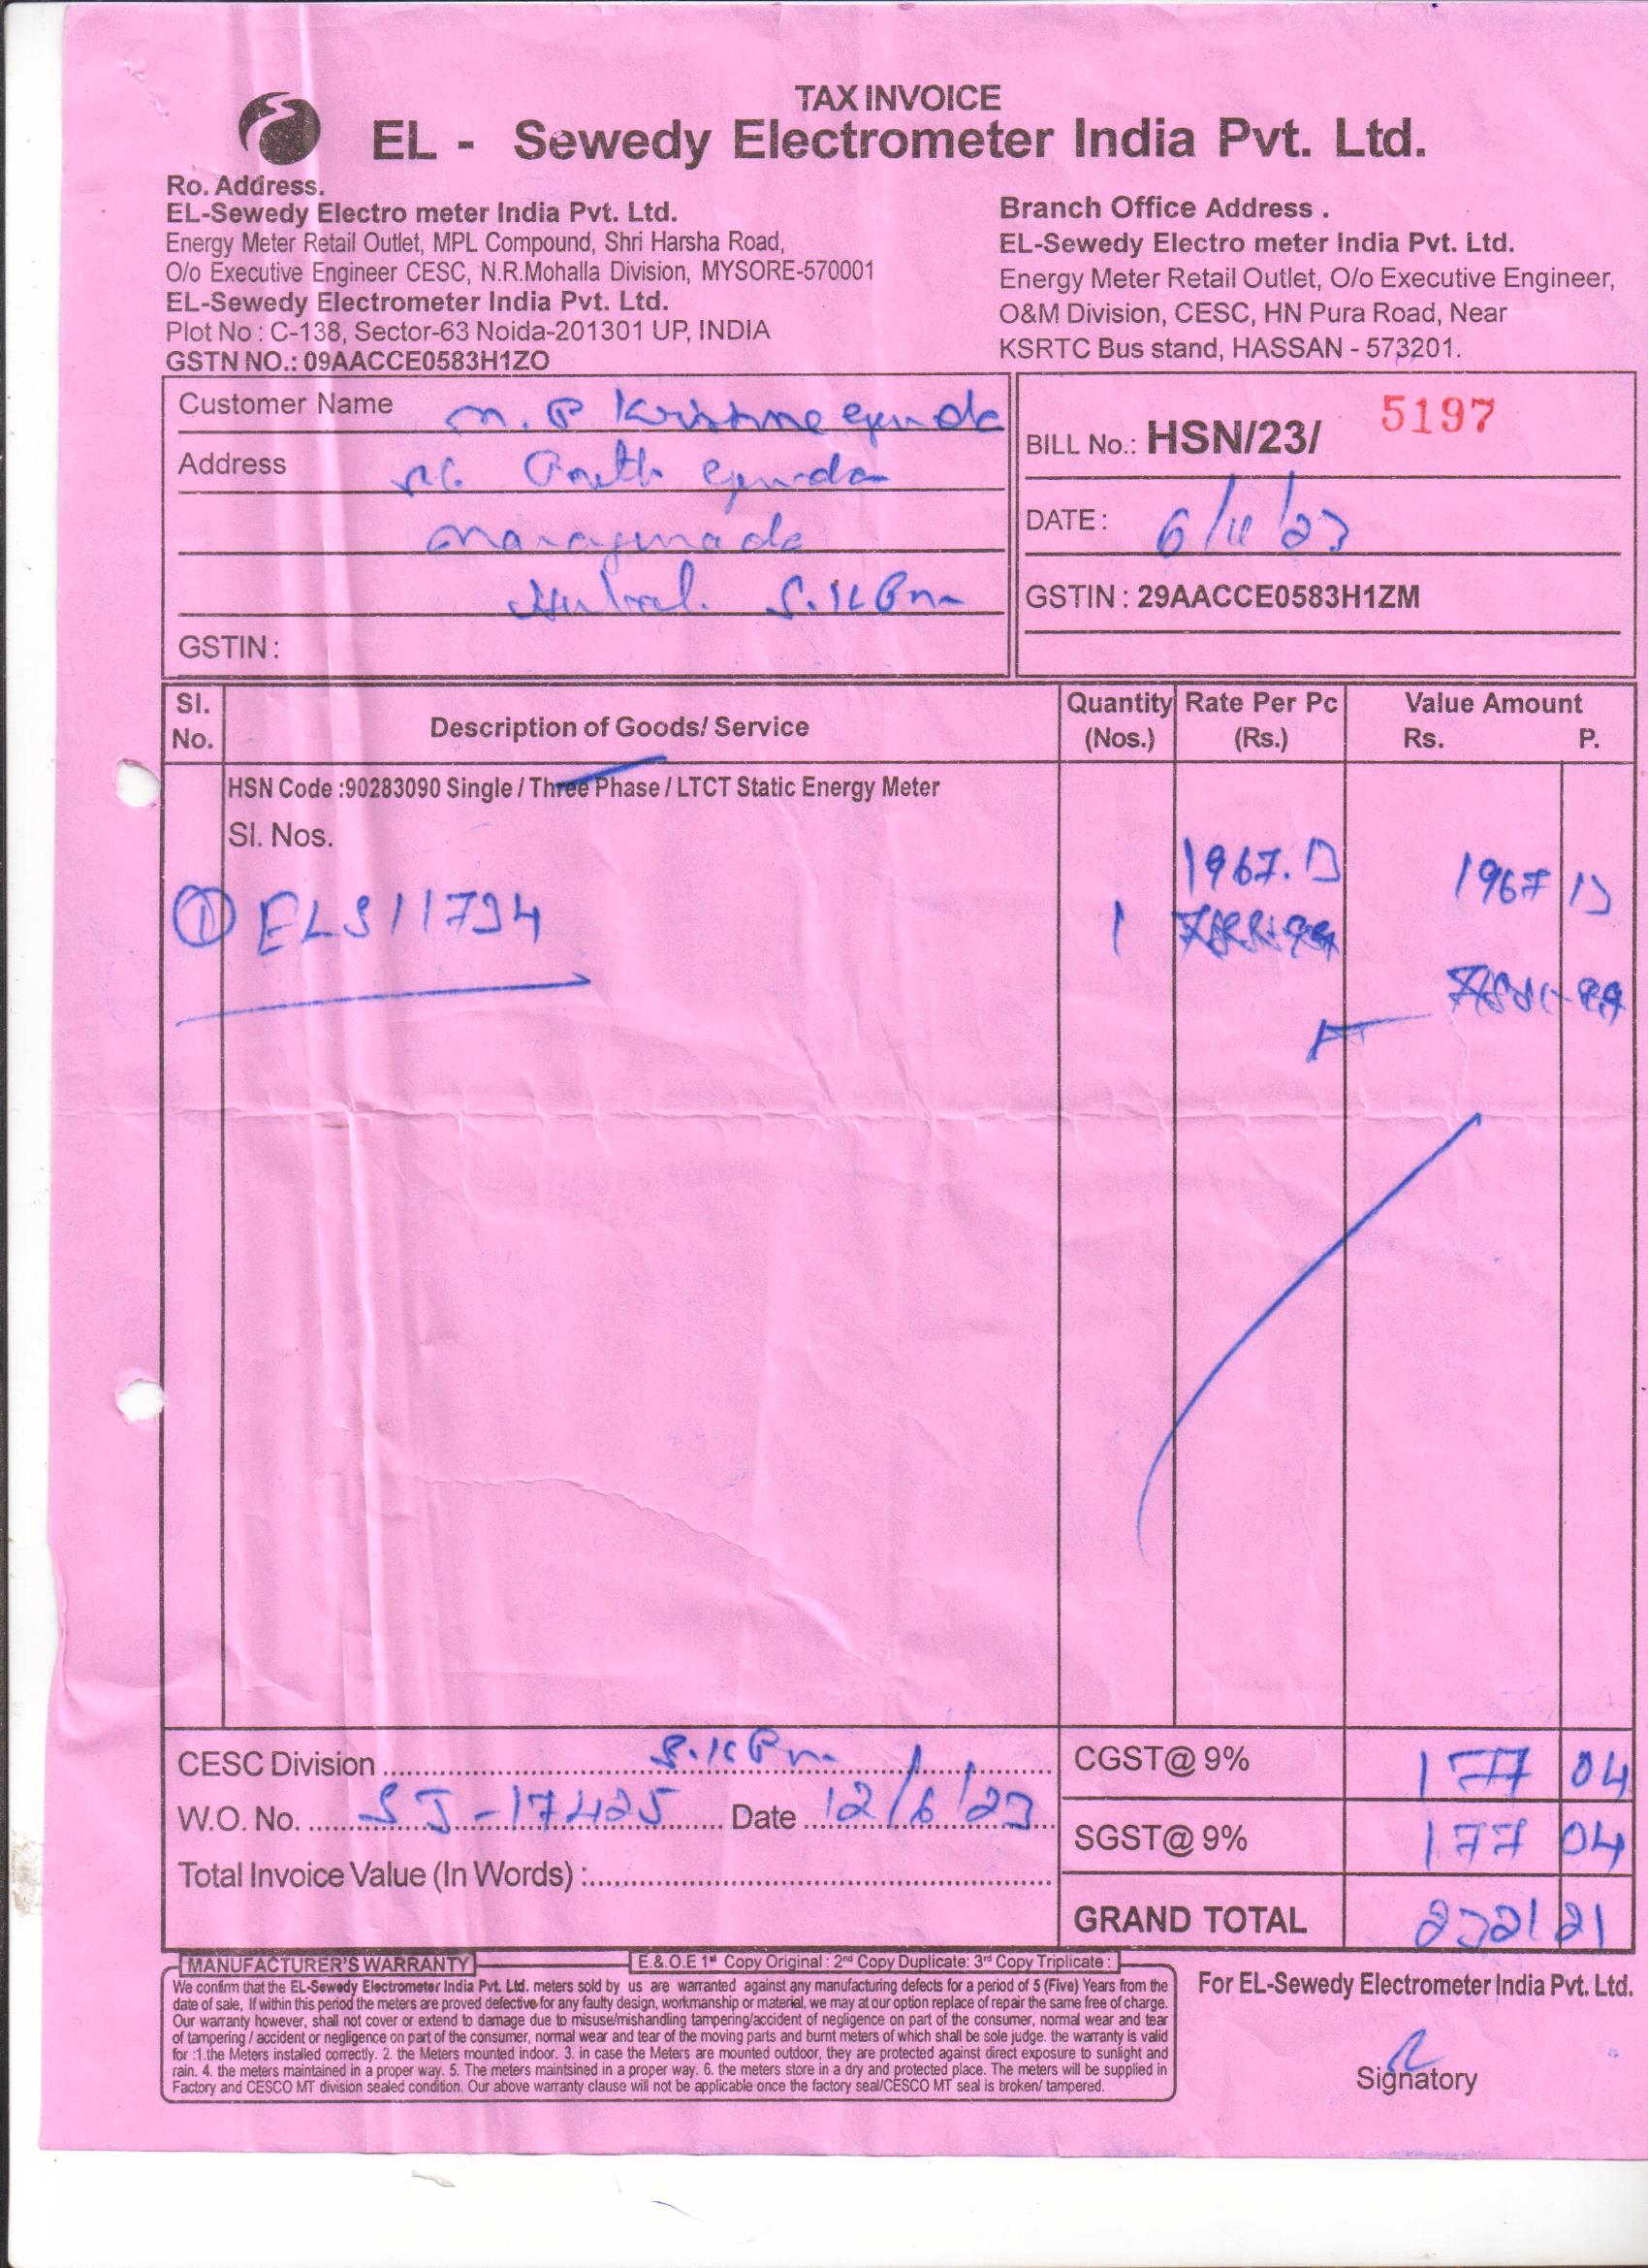 TAX INVOICE
EL - Sewedy Electrometer India Pvt. Ltd.
Ro. Address.
EL-Sewedy Electro meter India Pvt. Ltd.
Energy Meter Retail Outlet, MPL Compound, Shri Harsha Road,
O/o Executive Engineer CESC, N.R.Mohalla Division, MYSORE-570001
EL-Sewedy Electrometer India Pvt. Ltd.
Plot No : C-138, Sector-63 Noida-201301 UP, INDIA
GSTN NO.: 09AACCE0583H1ZO
Branch Office Address .
EL-Sewedy Electro meter India Pvt. Ltd.
Energy Meter Retail Outlet, O/o Executive Engineer,
O&M Division, CESC, HN Pura Road, Near
KSRTC Bus stand, HASSAN - 573201.
Customer Name
Address
S.K.Pm
GSTIN :
BILL No.: HSN/23/ 5197
DATE : 6/11/23
GSTIN : 29AACCE0583H1ZM
Sl. No. Description of Goods/ Service Quantity (Nos.) Rate Per Pc (Rs.) Value Amount Rs. P.
HSN Code :90283090 Single / Three Phase / LTCT Static Energy Meter
Sl. Nos.
1 1967 
CESC Division S.K.Pm
W.O. No. Date 12/6/23
Total Invoice Value (In Words) :
CGST@ 9% 177 04
SGST@ 9% 177 04
GRAND TOTAL 2321 21
MANUFACTURER'S WARRANTY
E.&.O.E 1st Copy Original : 2nd Copy Duplicate: 3rd Copy Triplicate :
We confirm that the EL-Sewedy Electrometer India Pvt. Ltd. meters sold by us are warranted against any manufacturing defects for a period of 5 (Five) Years from the
date of sale, If within this period the meters are proved defective for any faulty design, workmanship or material, we may at our option replace of repair the same free of charge.
Our warranty however, shall not cover or extend to damage due to misuse/mishandling tampering/accident of negligence on part of the consumer, normal wear and tear
of tampering / accident or negligence on part of the consumer, normal wear and tear of the moving parts and burnt meters of which shall be sole judge. the warranty is valid
for :1.the Meters installed correctly. 2. the Meters mounted indoor. 3. in case the Meters are mounted outdoor, they are protected against direct exposure to sunlight and
rain. 4. the meters maintained in a proper way. 5. The meters maintsined in a proper way. 6. the meters store in a dry and protected place. The meters will be supplied in
Factory and CESCO MT division sealed condition. Our above warranty clause will not be applicable once the factory seal/CESCO MT seal is broken/ tampered.
For EL-Sewedy Electrometer India Pvt. Ltd.
Signatory